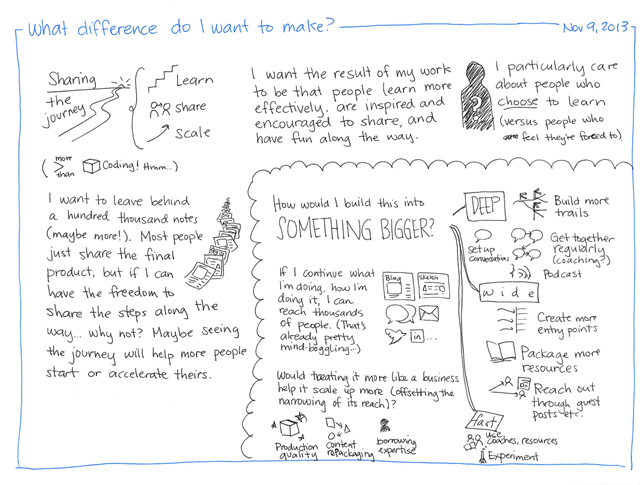 What difference do I want to make?
Nov 9, 2013
Sharing
the
journey
Learn
share
Scale
(more
than
Coding! Hmm...)
I want the result of my work
to be that people learn more
effectively, are inspired and
encouraged to share, and
have fun along the way.
?
I particularly care
about people who
choose to learn
(versus people who
feel they're forced to)
I want to leave behind
a hundred thousand notes
(maybe more!). Most people
just share the final
product, but if I can
have the freedom to
share the steps along the
way... why not? Maybe seeing
the journey will help more people
start or accelerate theirs.
How would I build this into
SOMETHING BIGGER?
If I continue what
I'm doing, how I'm
doing it, I can
reach thousands
of people. (That's
already pretty
mind-boggling...)
Blog
Sketch
in
...
Would treating it more like a business
help it scale up more (offsetting the
narrowing of its reach)?
Production
quality
content
repackaging
borrowing
expertise
DEEP
Build more
trails
Set up
conversations
Get together
regularly
(coaching?)
Podcast
wide
Create more
entry points
Package more
resources
Reach out
through guest
posts etc.
fast
use
coaches, resources
Experiment